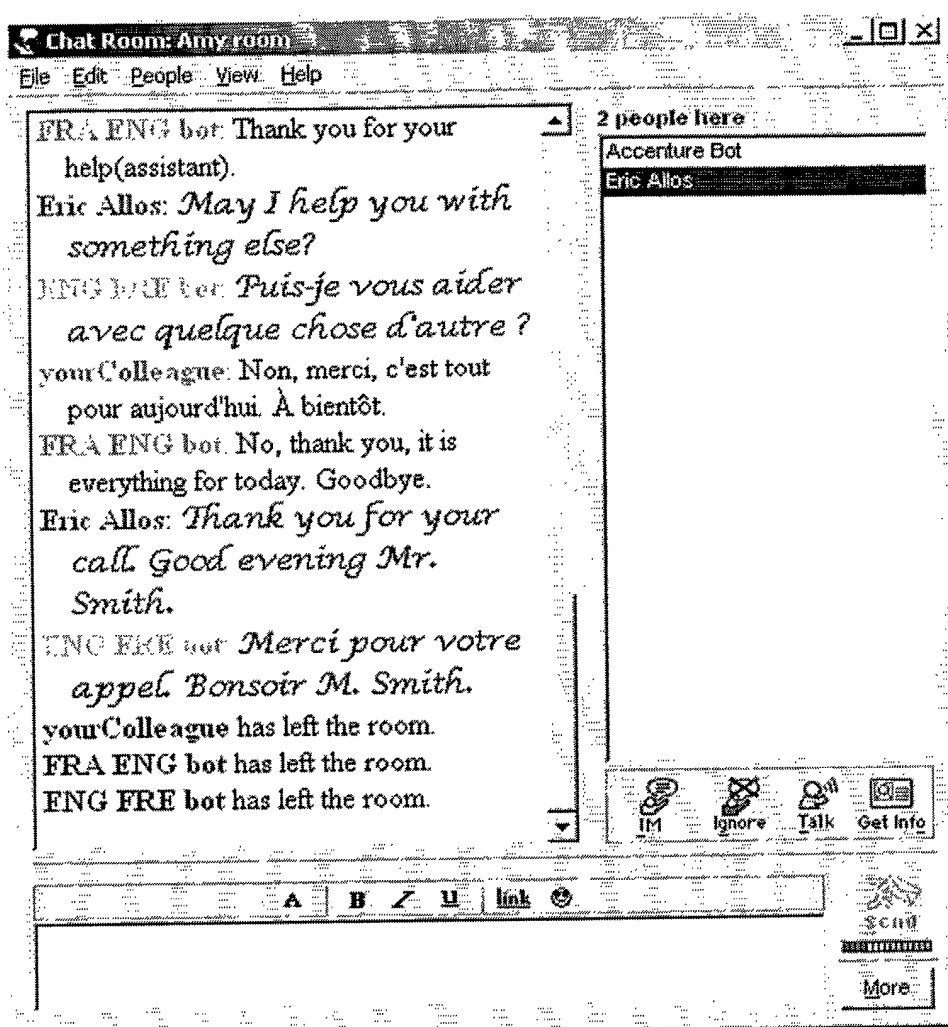 Chat Room: Amy room
File Edit People View Help
FRA ENG bot: Thank you for your
help(assistant).
Eric Allos: May I help you with
something else?
ENG FRE bot: Puis-je vous aider
avec quelque chose d'autre ?
yourColleague: Non, merci, c'est tout
pour aujourd'hui. À bientôt.
FRA ENG bot: No, thank you, it is
everything for today. Goodbye.
Eric Allos: Thank you for your
call. Good evening Mr.
Smith.
ENG FRE bot: Merci pour votre
appel. Bonsoir M. Smith.
yourColleague has left the room.
FRA ENG bot has left the room.
ENG FRE bot has left the room.
2 people here
Accenture Bot
Eric Allos
IM Ignore Talk Get Info
A B I U link
Send
More